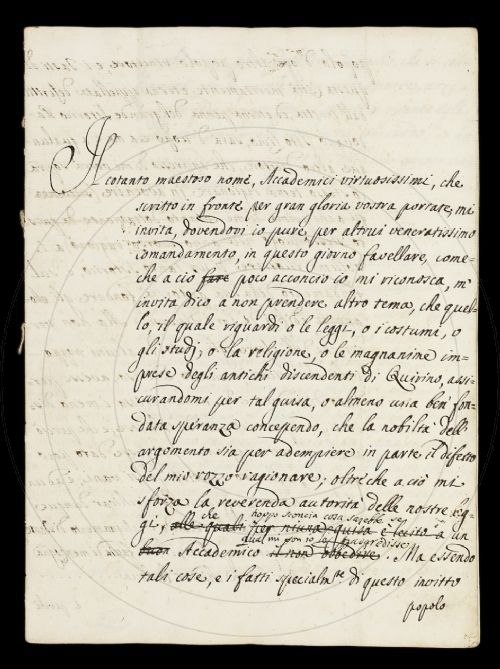 Il cotanto maestoso nome, Accademici virtuosissimi, che
scritto in fronte per gran gloria vostra portate, mi
invita, dovendovi io pure, per altrui veneratissimo
comandamento, in questo giorno favellare, come-
che a ciò fare poco acconcio io mi riconosca, m'
invita dico a non prendere altro tema, che quel-
lo, il quale riguardi o le leggi, o i costumi, o
gli studj, o la religione, o le magnanime im-
prese degli antichi discendenti di Quirino, assi-
curandomi per tal guisa, o almeno una ben fon-
data speranza concependo, che la nobiltà dell'
argomento sia per adempiere in parte il difetto
del mio rozzo ragionare; oltrechè a ciò mi
sforza la reverenda autorità delle nostre leg-
che troppo sconcia cosa sarebbe se
gi, alle quali per niuna guisa è lecito a un
qual mi son io le trasgredisse
buon Accademico il non obbedire. Ma essendo
tali cose, e i fatti specialmte di questo invitto
popolo